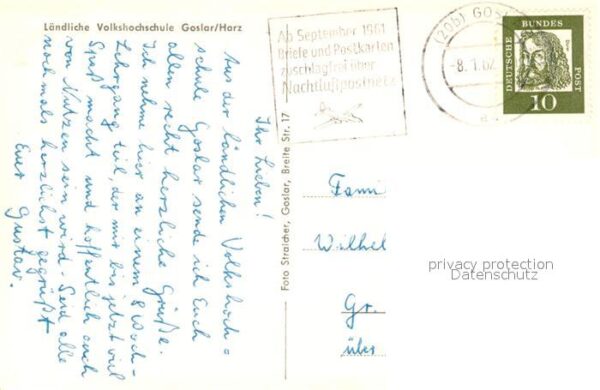 Ländliche Volkshochschule Goslar/Harz
Ihr Lieben!
Aus der ländlichen Volkshoch=
schule Goslar sende ich Euch
allen recht herzliche Grüße.
Ich nehme hier an einem 8 Woch-
Lehrgang teil, der mir bis jetzt viel
Spaß macht und hoffentlich auch
von Nutzen sein wird. Seid alle
nochmals herzlichst gegrüßt
Euer Gustav.
Foto Straicher, Goslar, Breite Str. 17
Ab September 1961
Briefe und Postkarten
zuschlagfrei über
Nachtluftpostnetz
(20b) GOS
-8.1.62
DEUTSCHE
BUNDES
POST
Dürer
10
Fami
Wilhel
Gr.
über
privacy protection
Datenschutz